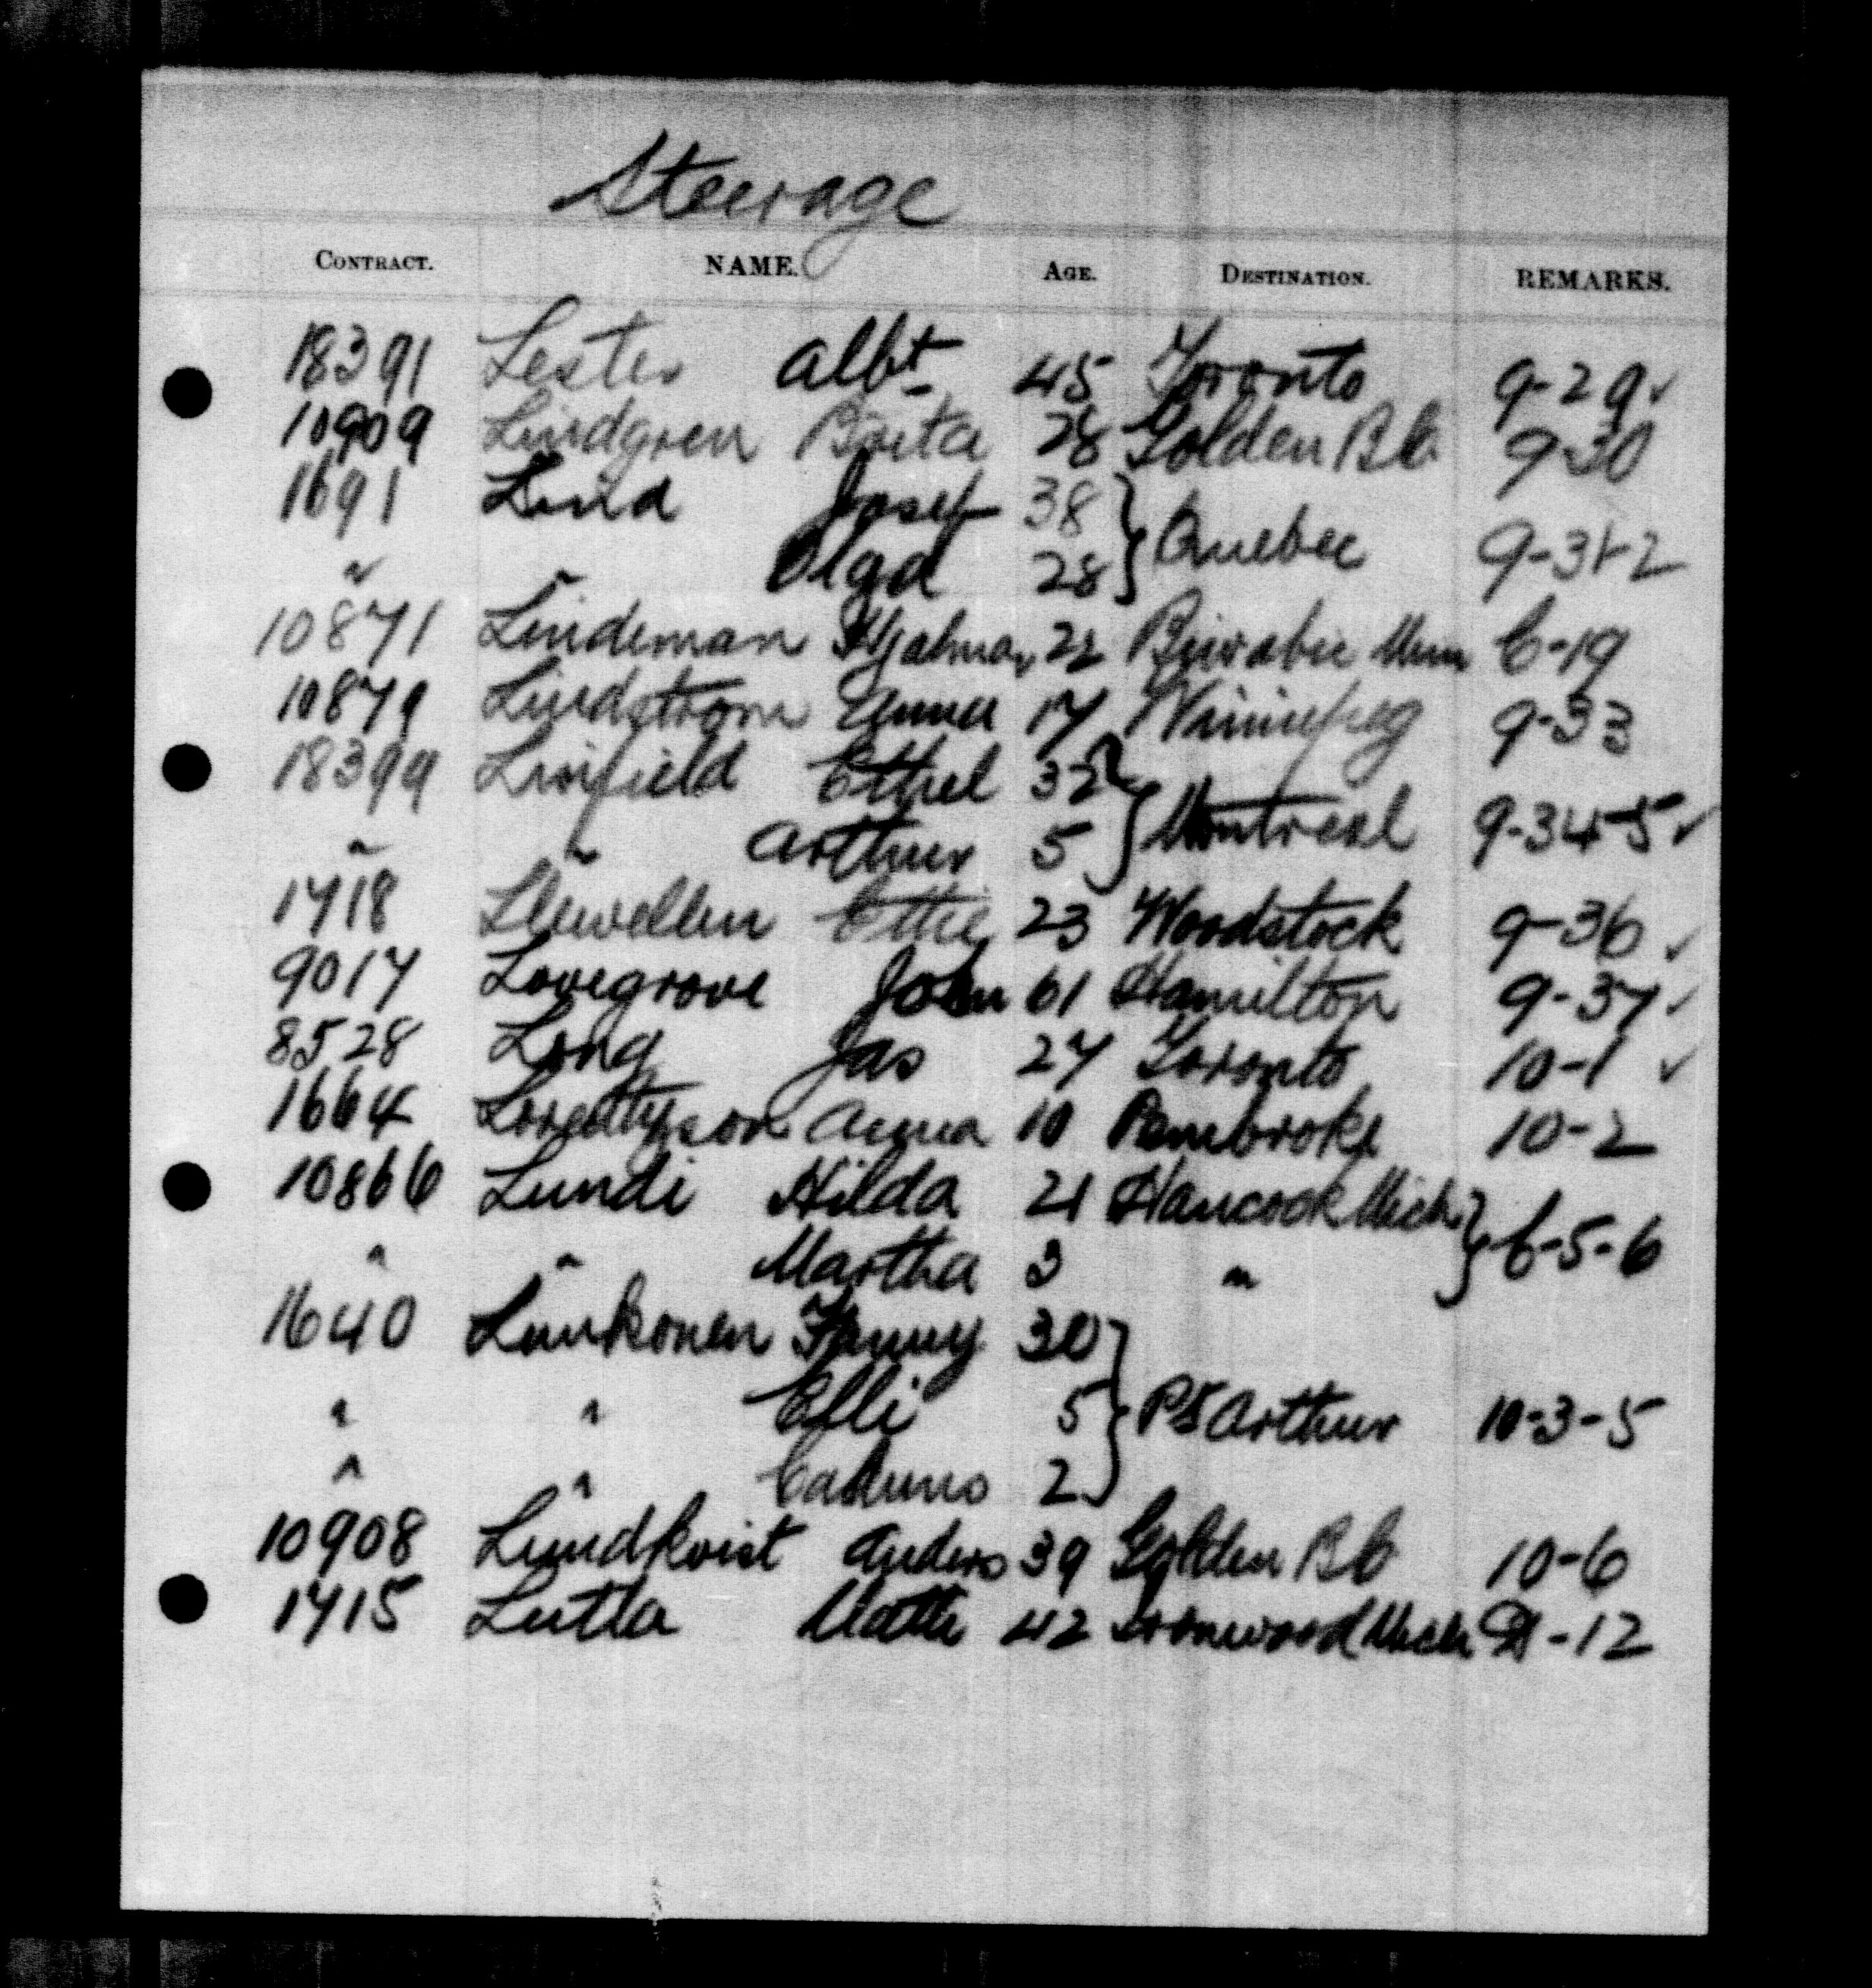 Steerage
CONTRACT. NAME. AGE. DESTINATION. REMARKS.
18391 Lester Albt 45 Toronto 9-29 ✓
10909 Lindgren Brita 28 Golden BC 9-30
1691 Lind Josef 38
" " Olga 28 Quebec 9-31-2
10871 Lindeman Hjalmar 22 Biwabic Minn C-19
10879 Lindstrom Anna 17 Winnipeg 9-33
18399 Linfield Ethel 32
" " Arthur 5 Montreal 9-34-5 ✓
1718 Llewellen Ettie 23 Woodstock 9-36 ✓
9017 Lovegrove John 61 Hamilton 9-37 ✓
8528 Long Jas 27 Toronto 10-1 ✓
1664 Anna 10 Pembroke 10-2
10866 Lundi Hilda 21 Hancock Mich
" " Martha 3 " C-5-6
1640 Lunkonen Fanny 30
" " Elli 5 Pt Arthur 10-3-5
" " 2
10908 Lundkvist Anders 39 Golden BC 10-6
1715 Lutta Matti 42 Ironwood Mich -12